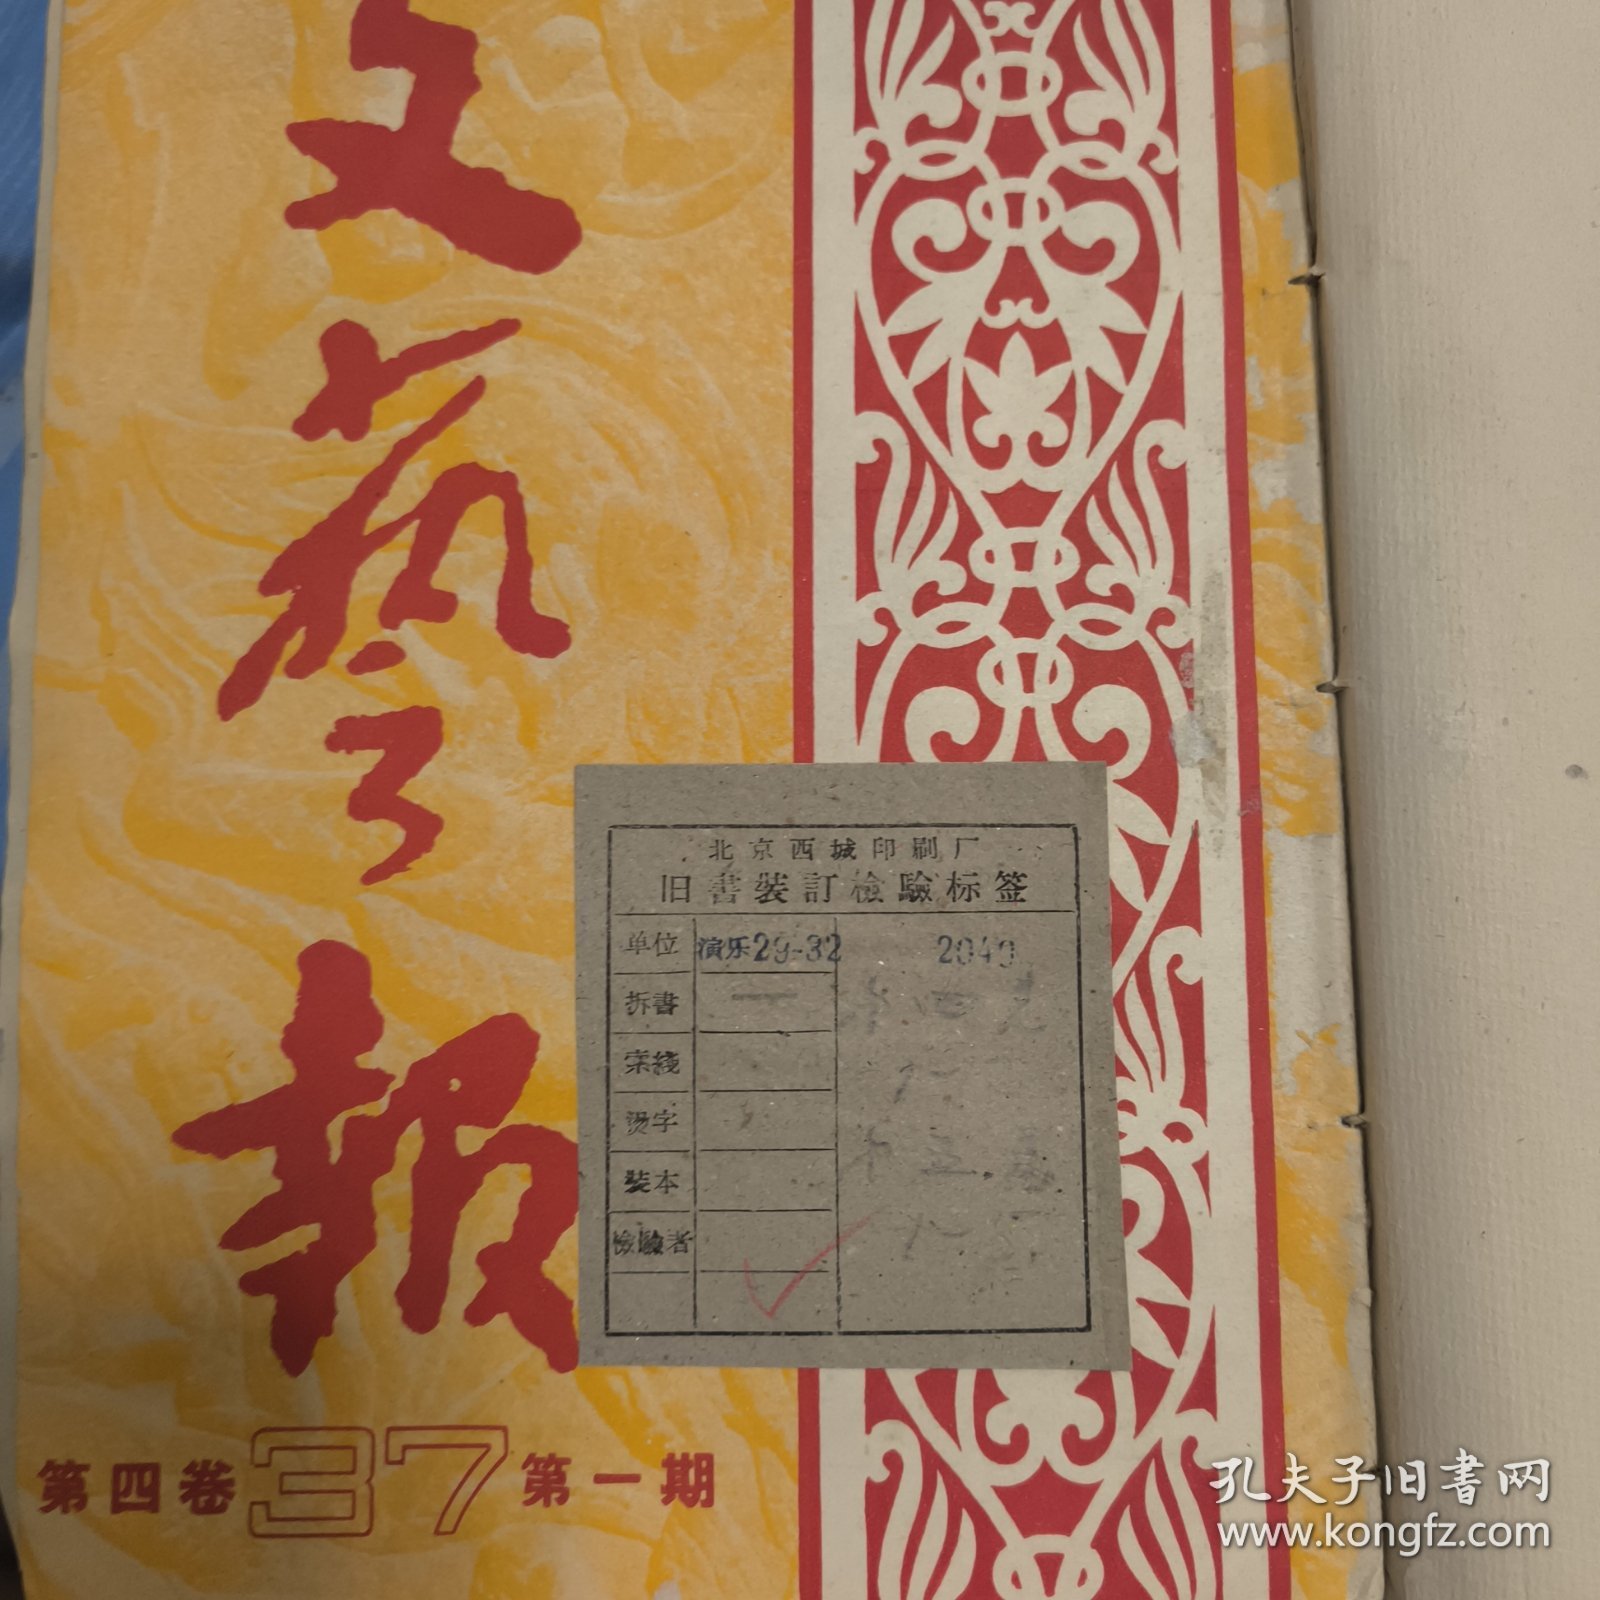 文藝報
第四卷 37 第一期
北京西城印刷厂
旧書裝訂檢驗标簽
单位 演乐29-32 2040
拆書 一
索綫
燙字
裝本
檢驗者
孔夫子旧書网
www.kongfz.com